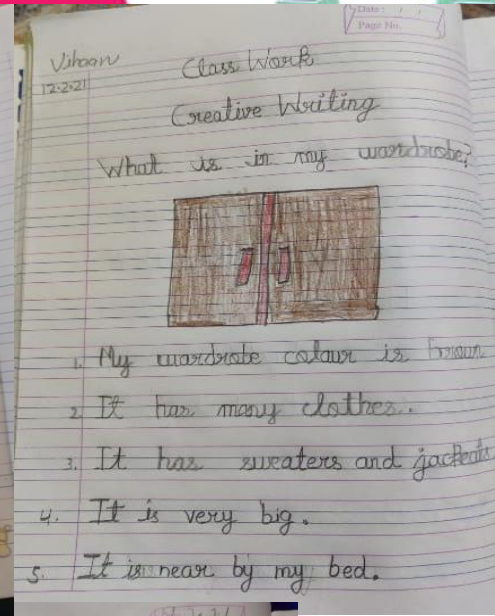 Date:
Page No.
Vihaan
12.2.21
Class Work
Creative Writing
What is in my wardrobe?
1. My wardrobe colour is brown
2. It has many clothes.
3. It has sweaters and jackeats
4. It is very big.
5. It is near by my bed.